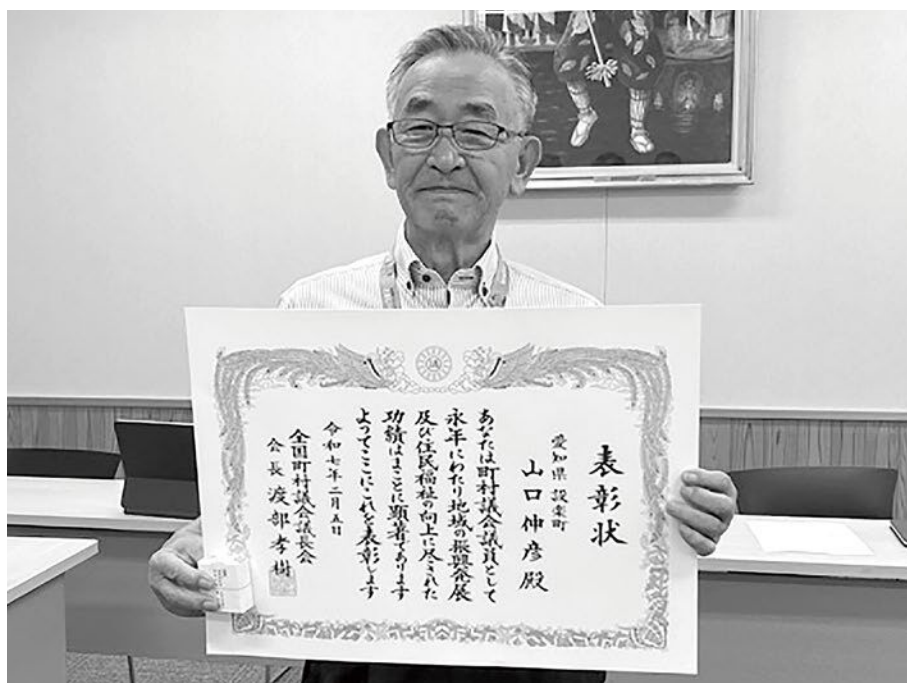 表彰状
愛知県 設楽町
山口伸彦殿
あなたは町村議会議員として
永年にわたり地域の振興発展
及び住民福祉の向上に尽された
功績はまことに顕著であります
よってここにこれを表彰します
令和七年二月五日
全国町村議会議長会
会長 渡部孝樹